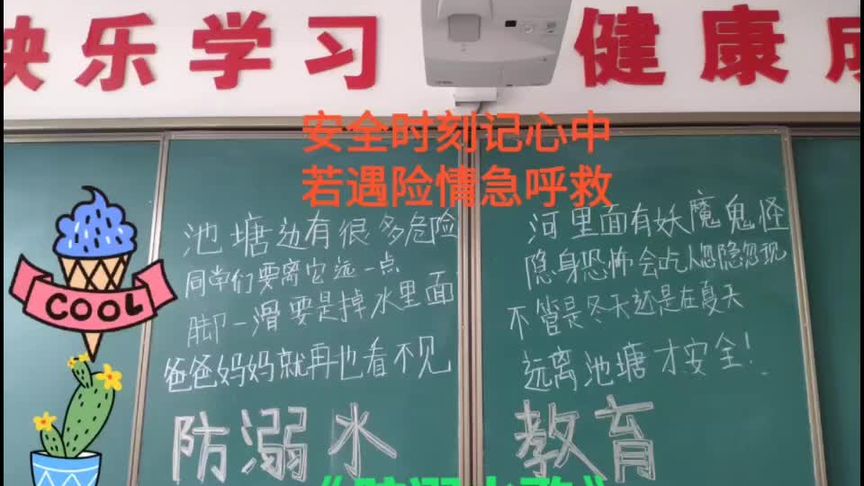 快乐学习 健康成
安全时刻记心中
若遇险情急呼救
池塘边有很多危险
同学们要离它远一点
脚一滑要是掉水里面
爸爸妈妈就再也看不见
河里面有妖魔鬼怪
隐身恐怖会吃人忽隐忽现
不管是冬天还是在夏天
远离池塘才安全!
防溺水 教育
COOL